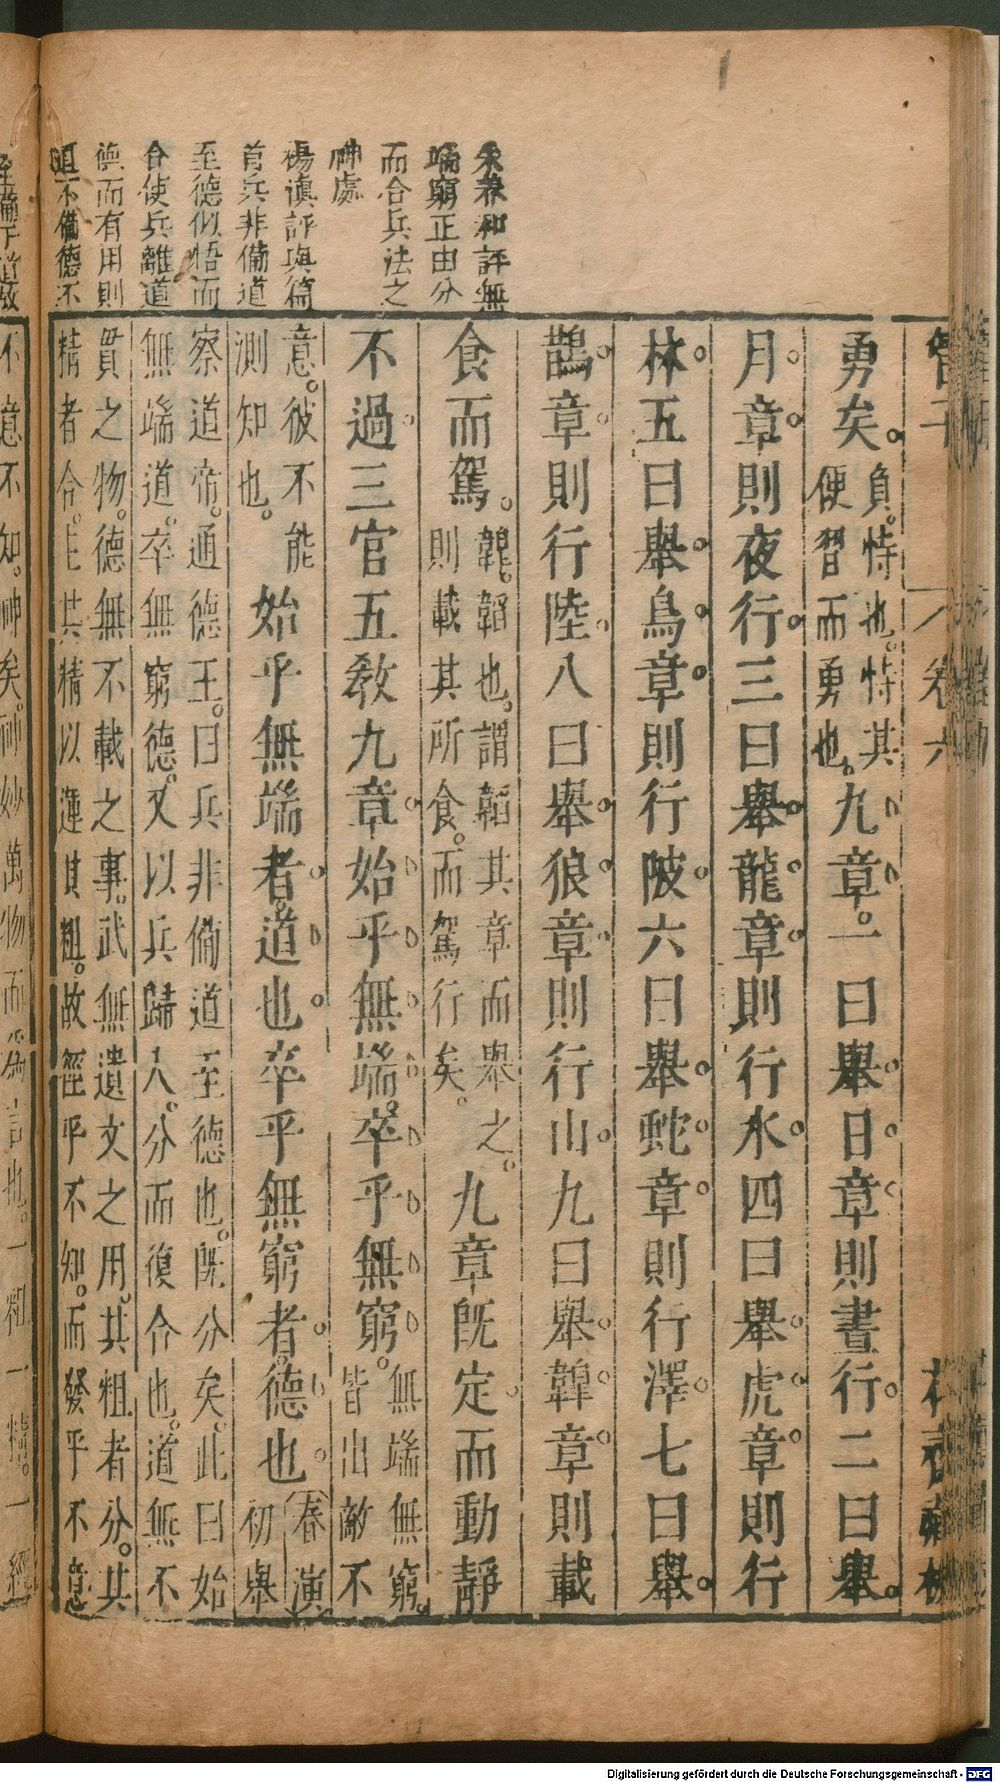 管子
卷六
花齋藏板
勇矣。負。恃也。恃其便習而勇也。九章。一曰舉日章則晝行二曰舉
月章則夜行三曰舉龍章則行水四曰舉虎章則行
林五曰舉鳥章則行陂六曰舉蛇章則行澤七曰舉
鵲章則行陸八曰舉狼章則行山九曰舉韟章則載
食而駕。韟。韜也。謂韜其章而舉之。則載其所食。而駕行矣。九章既定而動靜
不過三官五教九章始乎無端。卒乎無窮。無端無窮。皆出敵不
意。彼不能測知也。始乎無端者。道也卒乎無窮者。德也春演初舉
察道帝。通德王。曰兵非備道至德也。既分矣。此曰始
無端道。卒無窮德。又以兵歸人。分而復合也。道無不
貫之物。德無不載之事。武無遺文之用。其粗者分。其
精者合。主其精以運其粗。故徑乎不知。而發乎不意
朱養和評無
端窮正由分
而合兵法之
神處
楊滇評與篇
首兵非備道
至德似悟而
合使兵離道
德而有用則
道不備德不
至備下道故
不意不知。神矣。神妙萬物而為言也。一粗一精。一經
Digitalisierung gefördert durch die Deutsche Forschungsgemeinschaft - DFG